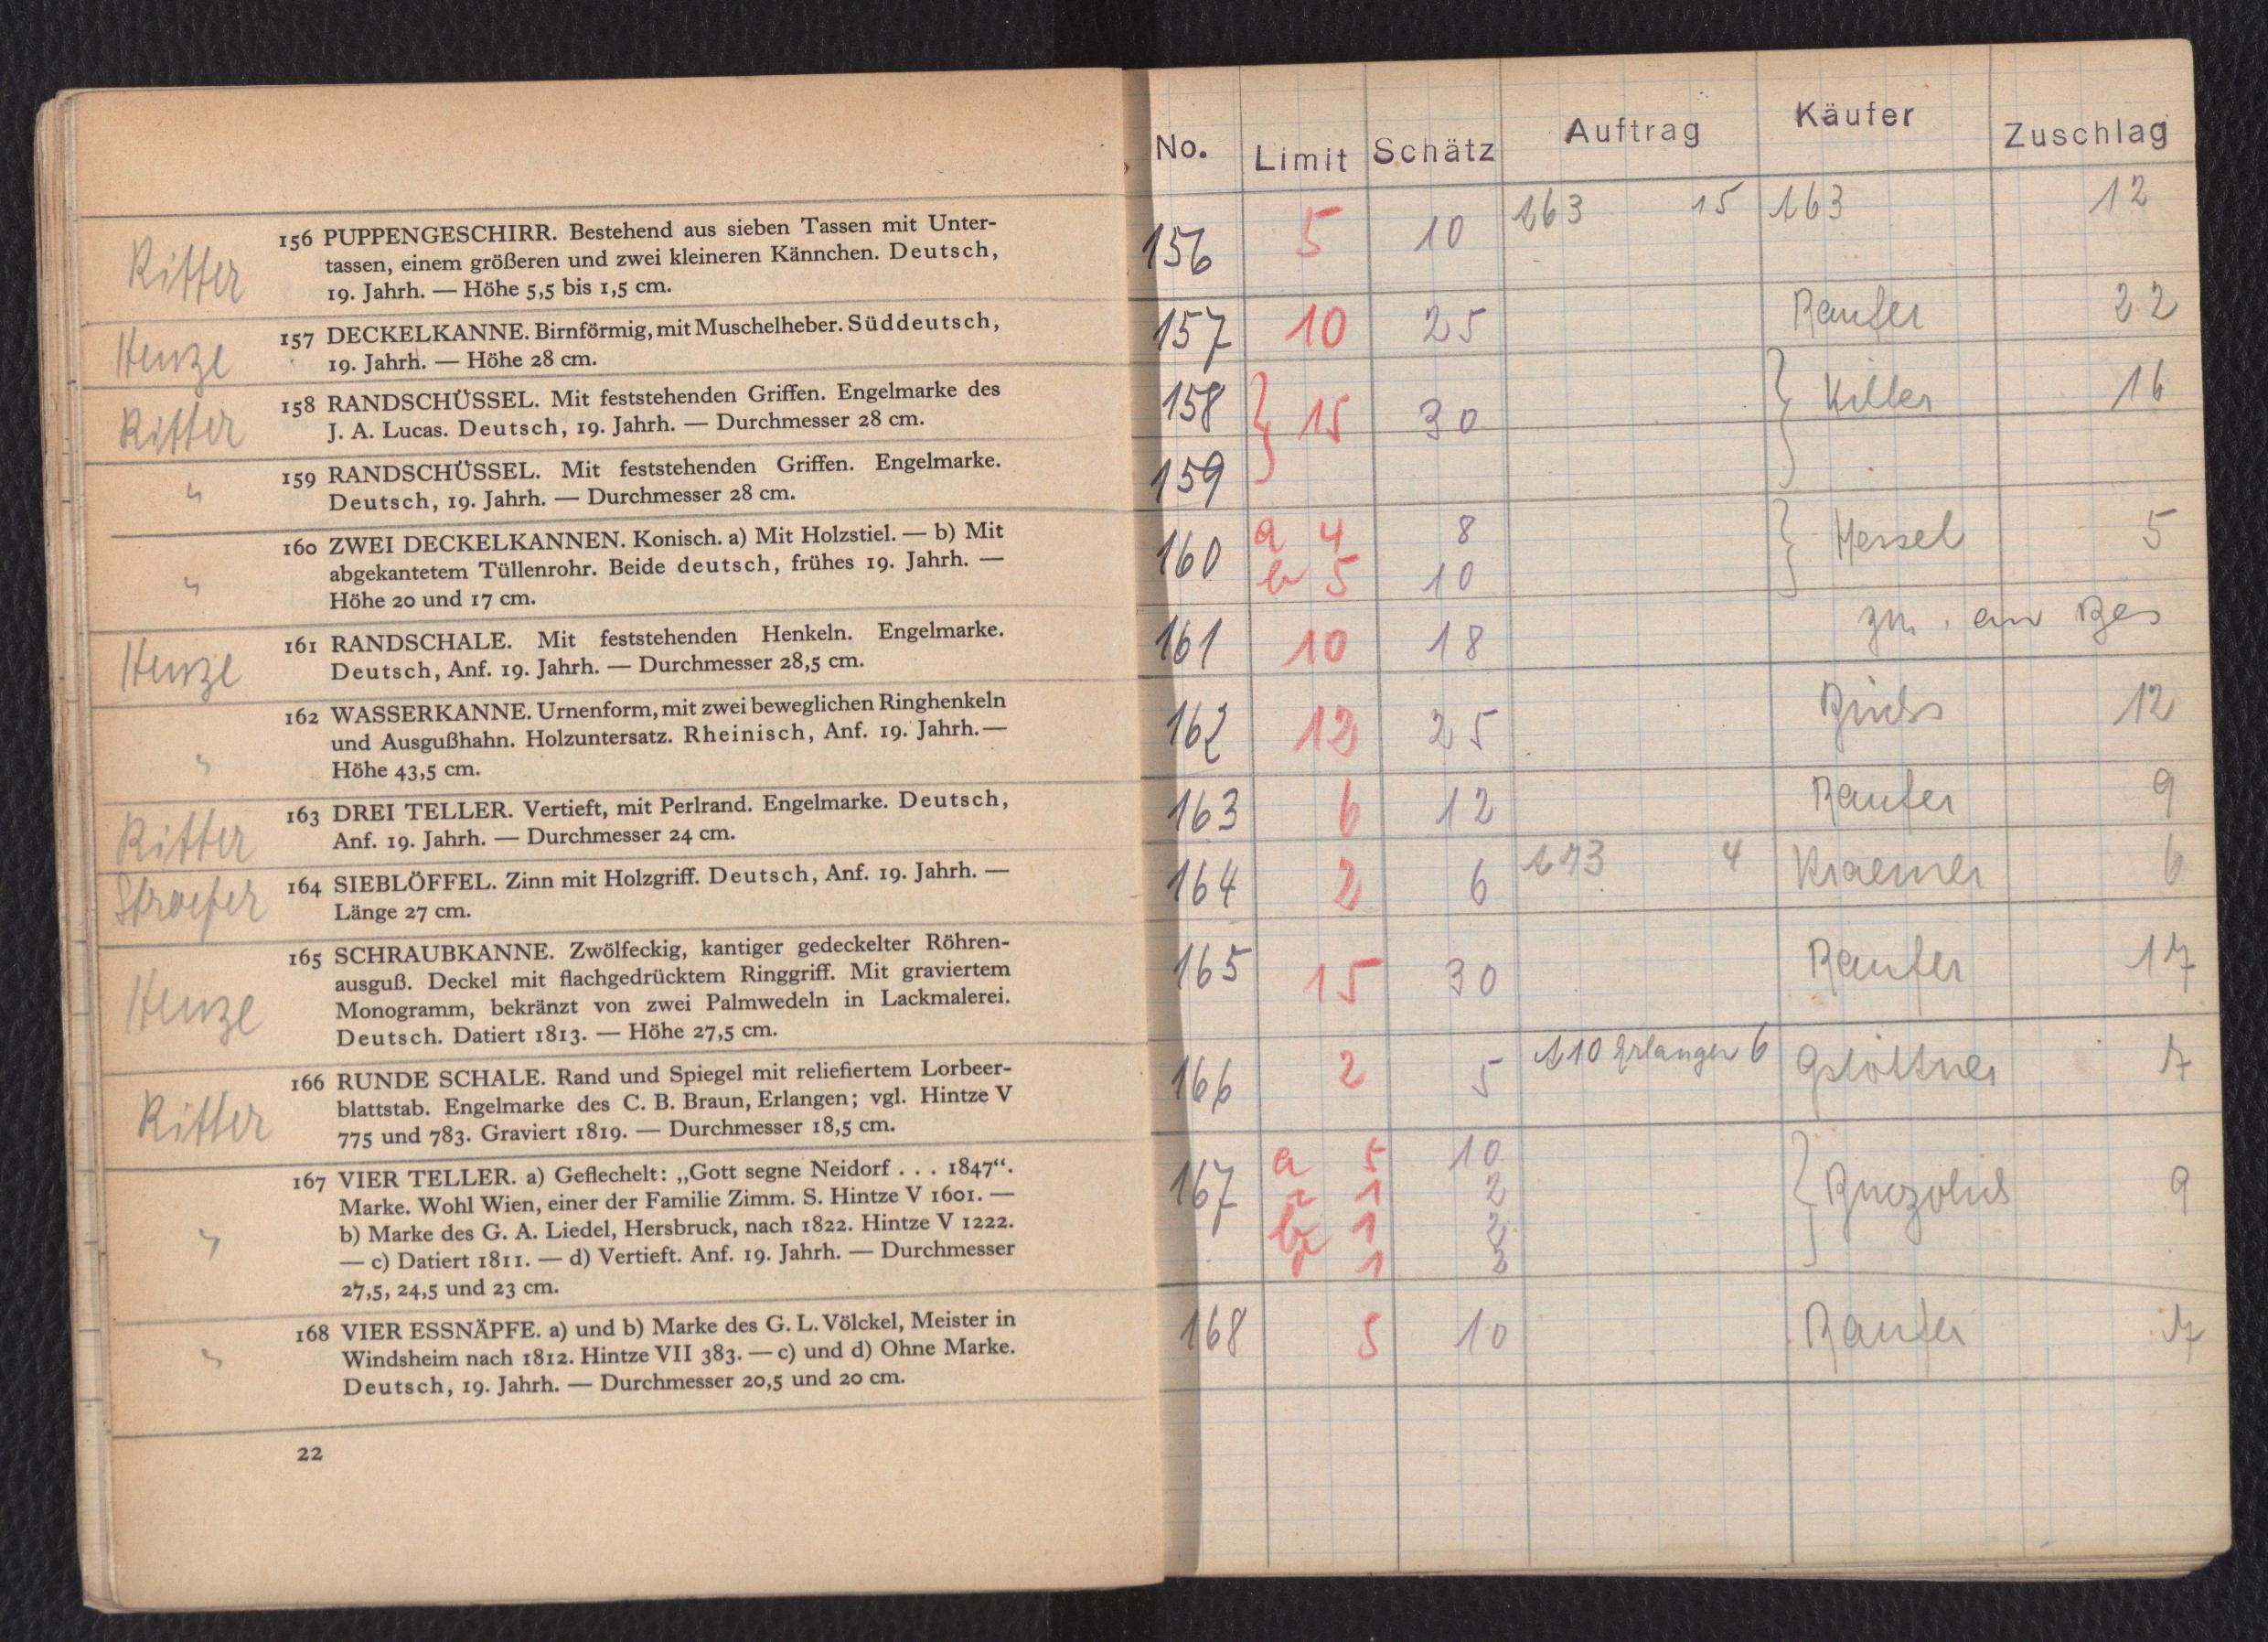 Ritter
156 PUPPENGESCHIRR. Bestehend aus sieben Tassen mit Unter-
tassen, einem größeren und zwei kleineren Kännchen. Deutsch,
19. Jahrh. — Höhe 5,5 bis 1,5 cm.
Henze
157 DECKELKANNE. Birnförmig, mit Muschelheber. Süddeutsch,
19. Jahrh. — Höhe 28 cm.
Ritter
158 RANDSCHÜSSEL. Mit feststehenden Griffen. Engelmarke des
J. A. Lucas. Deutsch, 19. Jahrh. — Durchmesser 28 cm.
"
159 RANDSCHÜSSEL. Mit feststehenden Griffen. Engelmarke.
Deutsch, 19. Jahrh. — Durchmesser 28 cm.
"
160 ZWEI DECKELKANNEN. Konisch. a) Mit Holzstiel. — b) Mit
abgekantetem Tüllenrohr. Beide deutsch, frühes 19. Jahrh. —
Höhe 20 und 17 cm.
Henze
161 RANDSCHALE. Mit feststehenden Henkeln. Engelmarke.
Deutsch, Anf. 19. Jahrh. — Durchmesser 28,5 cm.
"
162 WASSERKANNE. Urnenform, mit zwei beweglichen Ringhenkeln
und Ausgußhahn. Holzuntersatz. Rheinisch, Anf. 19. Jahrh. —
Höhe 43,5 cm.
Ritter
163 DREI TELLER. Vertieft, mit Perlrand. Engelmarke. Deutsch,
Anf. 19. Jahrh. — Durchmesser 24 cm.
Stroefer
164 SIEBLÖFFEL. Zinn mit Holzgriff. Deutsch, Anf. 19. Jahrh. —
Länge 27 cm.
Henze
165 SCHRAUBKANNE. Zwölfeckig, kantiger gedeckelter Röhren-
ausguß. Deckel mit flachgedrücktem Ringgriff. Mit graviertem
Monogramm, bekränzt von zwei Palmwedeln in Lackmalerei.
Deutsch. Datiert 1813. — Höhe 27,5 cm.
Ritter
166 RUNDE SCHALE. Rand und Spiegel mit reliefiertem Lorbeer-
blattstab. Engelmarke des C. B. Braun, Erlangen; vgl. Hintze V
775 und 783. Graviert 1819. — Durchmesser 18,5 cm.
"
167 VIER TELLER. a) Geflechelt: „Gott segne Neidorf . . . 1847“.
Marke. Wohl Wien, einer der Familie Zimm. S. Hintze V 1601. —
b) Marke des G. A. Liedel, Hersbruck, nach 1822. Hintze V 1222.
— c) Datiert 1811. — d) Vertieft. Anf. 19. Jahrh. — Durchmesser
27,5, 24,5 und 23 cm.
"
168 VIER ESSNÄPFE. a) und b) Marke des G. L. Völckel, Meister in
Windsheim nach 1812. Hintze VII 383. — c) und d) Ohne Marke.
Deutsch, 19. Jahrh. — Durchmesser 20,5 und 20 cm.
22
No. Limit Schätz Auftrag Käufer Zuschlag
156 5 10 15 12
157 10 25 Raufer 22
158 15 30 Killer 16
159
160 a 4 8 Hessel 5
b 5 10
161 10 18
162 12 25 12
163 6 12 Raufer 9
164 2 6 4 Kraemer 6
165 15 30 Raufer 17
166 2 5 Erlangen 6 Gstöttner 7
167 a 5 10 9
1 2
b 1 2
1 2
168 5 10 Raufer 7